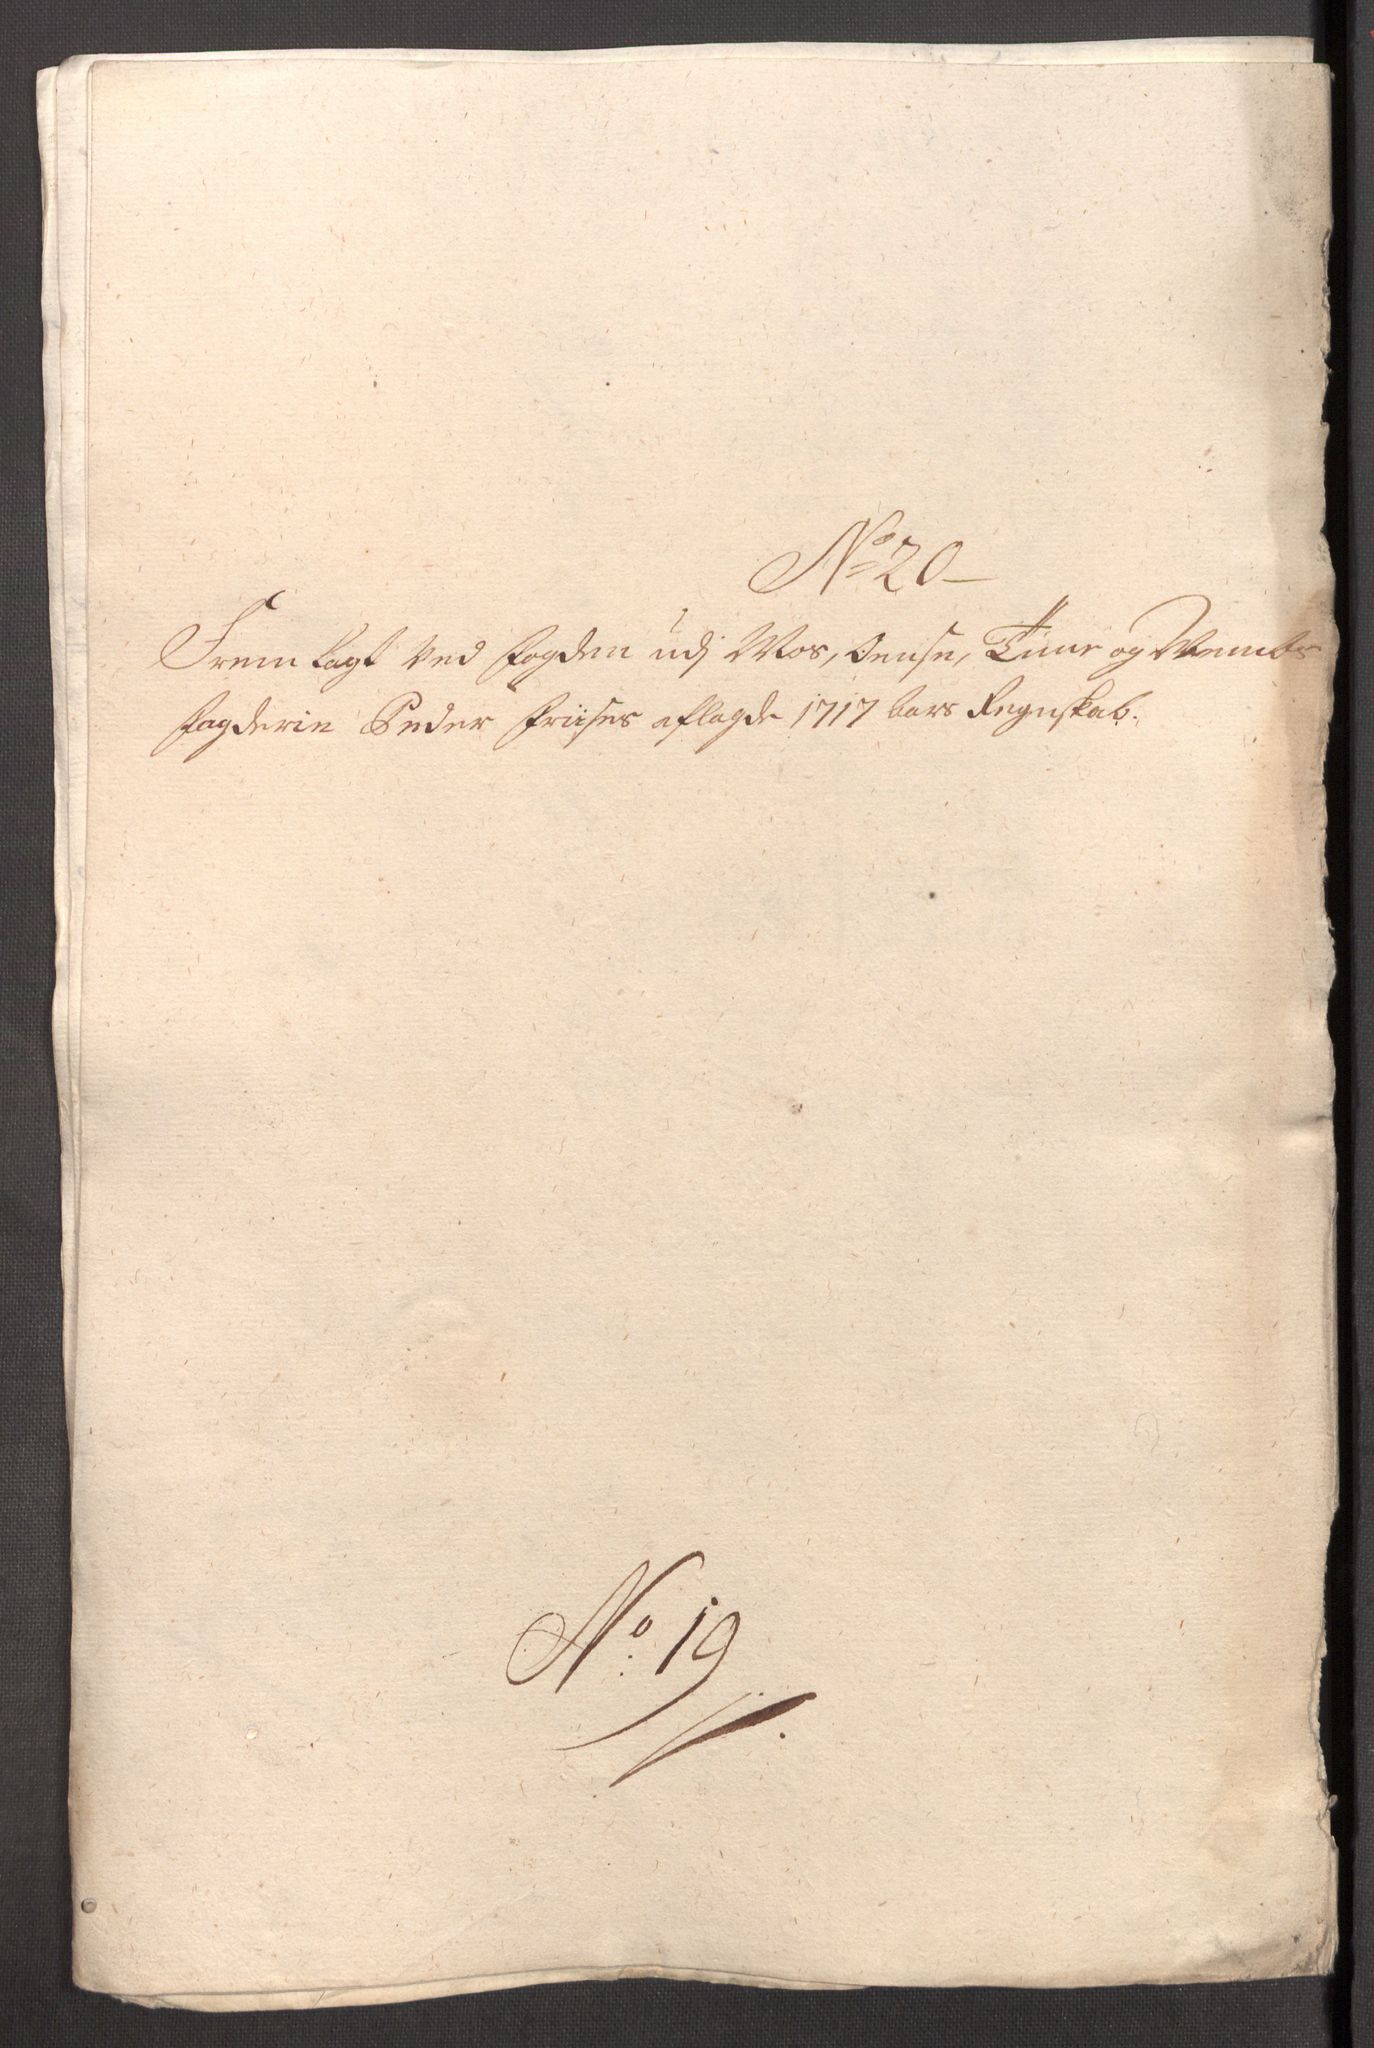 No 20
Fremlagt ved fogden udj Mos, Onsøe, Tune og Vemb:
fogderie Peder Friises aflagde 1717 aars Regnskab.
No: 19